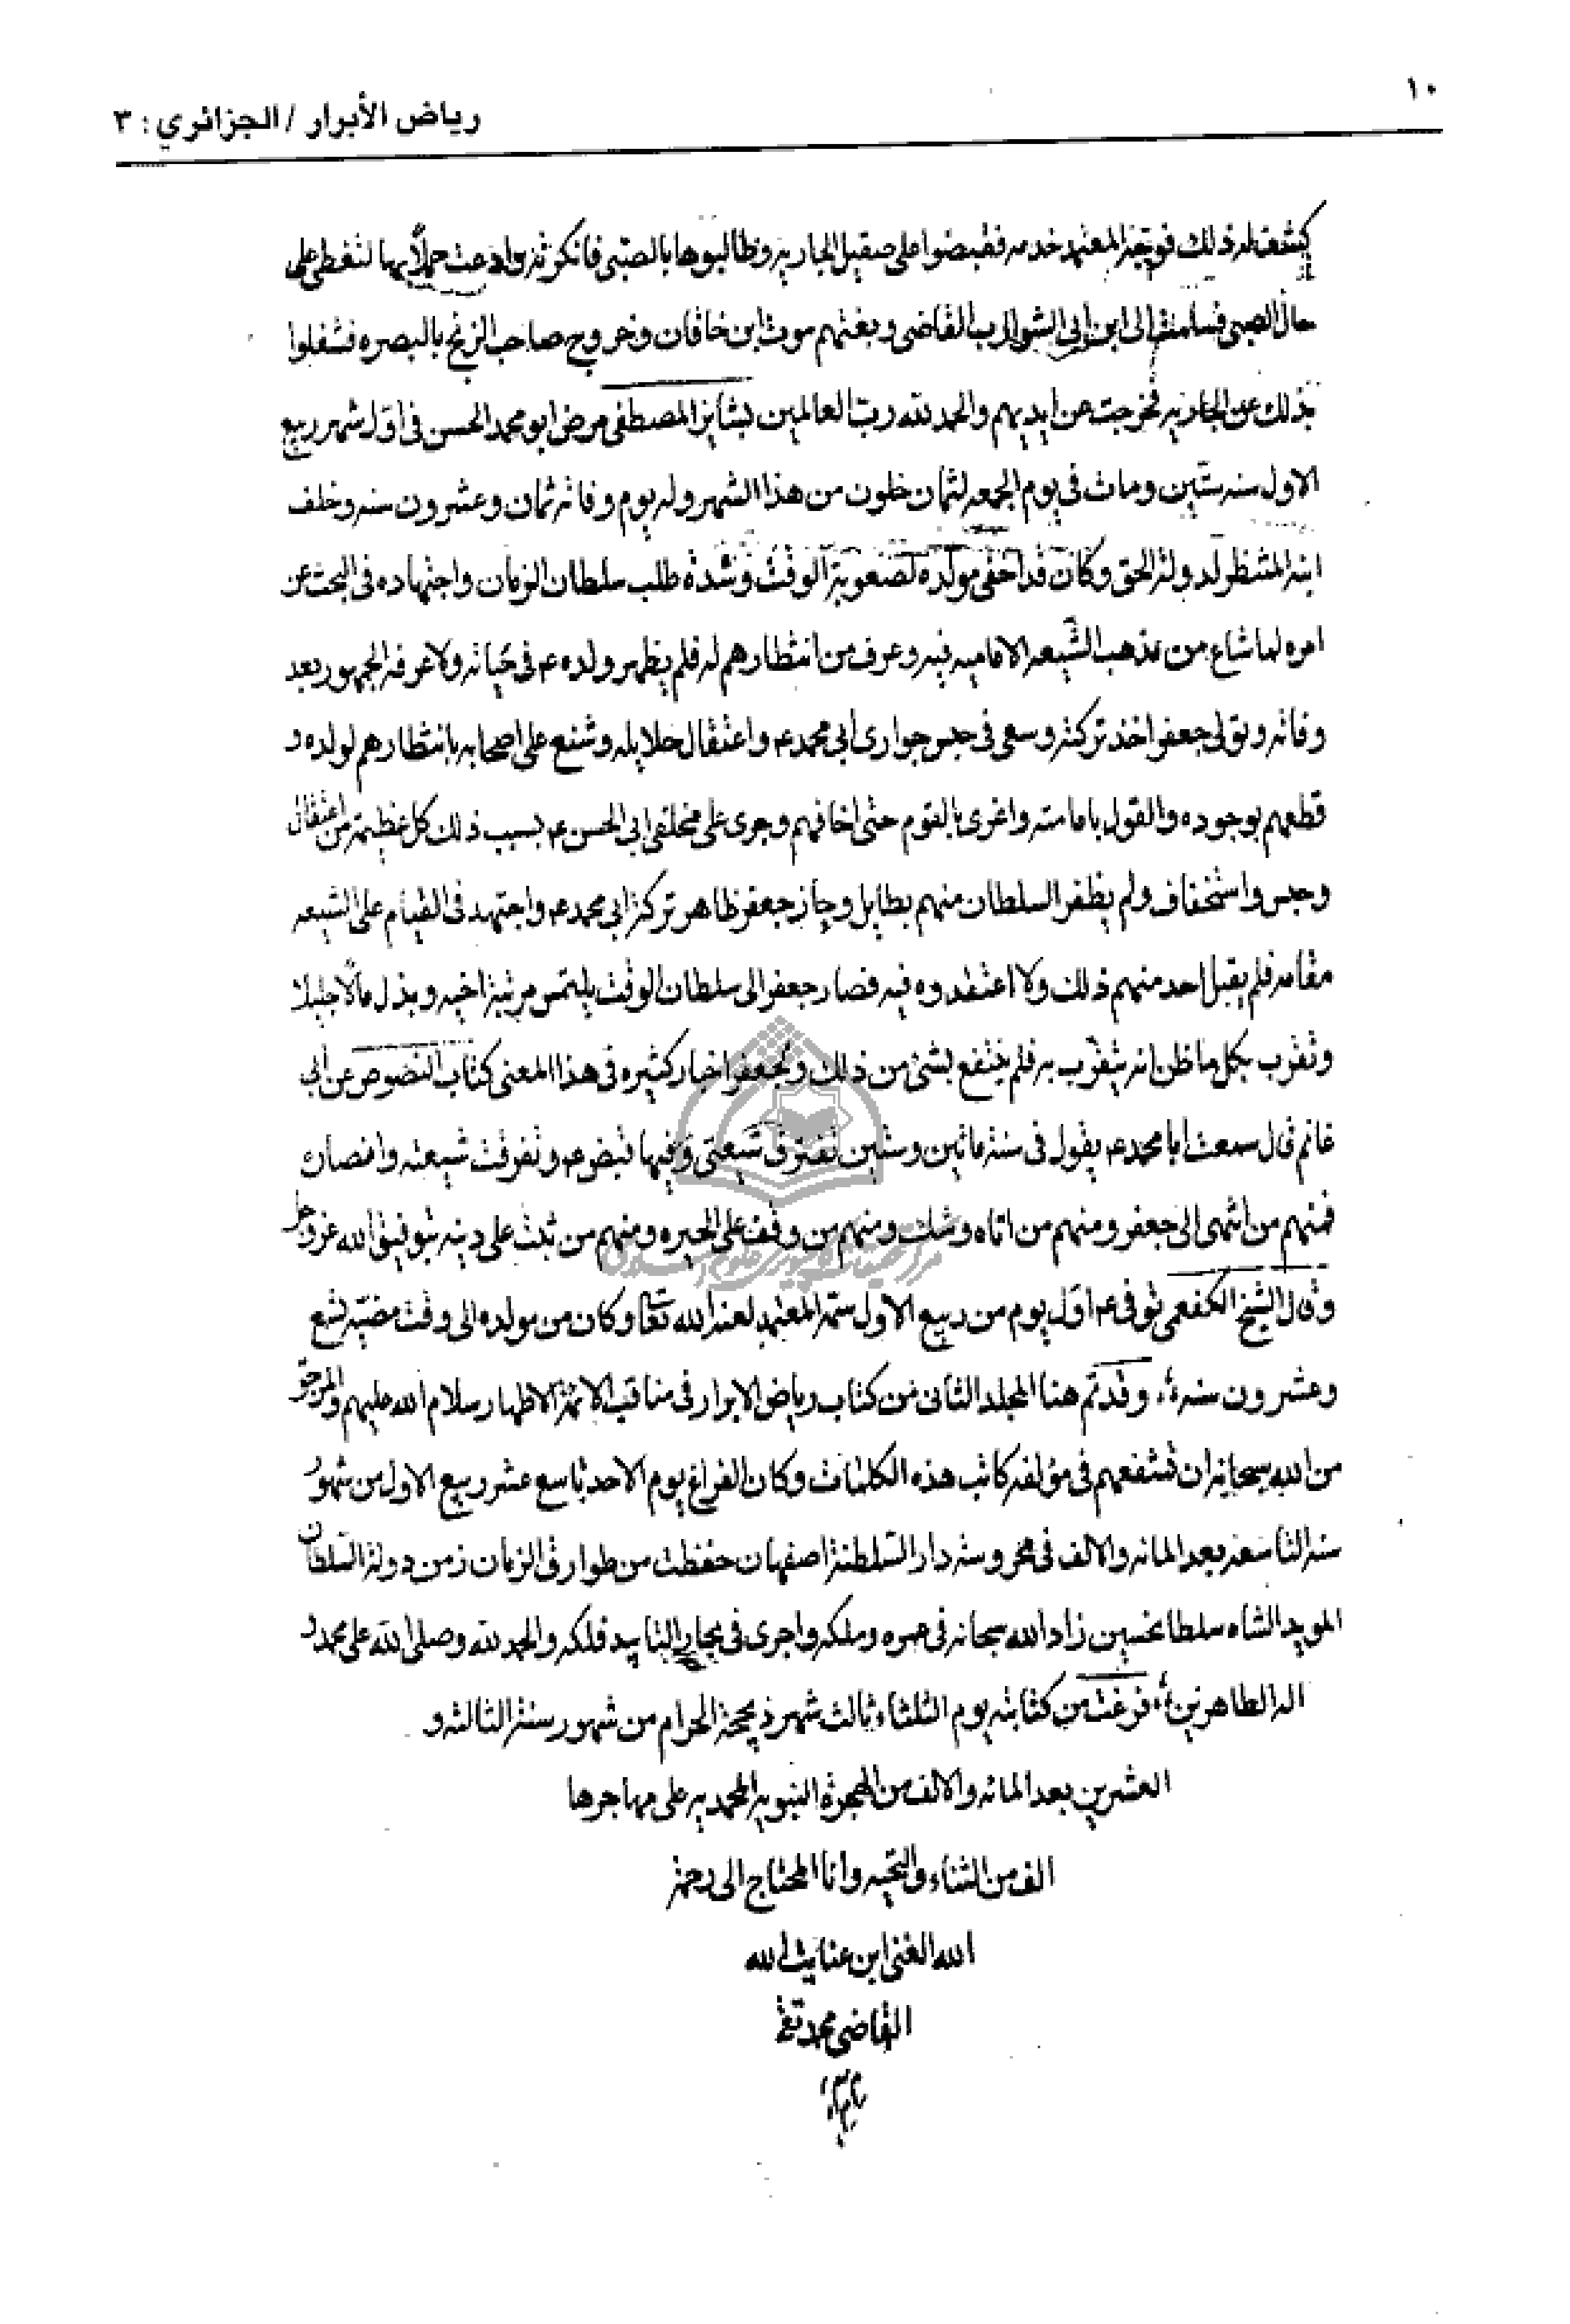 ١٠
رياض الأبرار / الجزائري : ٣
كشف له ذلك فوجه المعتمد خدمه فقبضوا على صقيل الجاريه وطالبوها بالصبى فانكرته وادعت حملاً بها لتغطى على
حال الصبى فسلمت الى ابن ابى الشوارب القاضى وبغتهم موت ابن خاقان وخروج صاحب الزنج بالبصره فشغلوا
بذلك عن الجاريه فخرجت عن ايديهم والحمد لله ربّ العالمين بشاير المصطفى مرض ابو محمد الحسن فى اوّل شهر ربيع
الاول سنه ستّين ومات فى يوم الجمعه لثمان خلون من هذا الشهر وله يوم وفاته ثمان وعشرون سنه وخلف
ابنه المنتظر لدولة الحق وكان قد اخفى مولده لصعوبة الوقت وشدة طلب سلطان الزمان واجتهاده فى البحث عن
امره لما شاع من مذهب الشّيعه الاماميه فيه وعرف من انتظارهم له فلم يظهر ولده ع فى حياته ولا عرفه الجمهور بعد
وفاته وتولى جعفر اخذ تركته وسعى فى حبس جوارى أبى محمد ع واعتقال حلايله وشنع على اصحابه بانتظارهم لولده و
قطعهم بوجوده والقول بامامته واغرى بالقوم حتى اخافهم وجرى على مخلفى ابى الحسن ع بسبب ذلك كل عظيمة من اعتقال
وحبس واستخفاف ولم يظفر السلطان منهم بطايل وحاز جعفر ظاهر تركة ابى محمد ع واجتهد فى القيام على الشيعه
مقامه فلم يقبل احد منهم ذلك ولا اعتقدوه فيه فصار جعفر الى سلطان الوقت يلتمس مرتبة اخيه وبذل مالا جليلا
وتقرب بكل ما ظن انه يتقرّب به فلم ينتفع بشئ من ذلك ولجعفر اخبار كثيره فى هذا المعنى كتاب النصوص عن أبى
غانم قال سمعت أبا محمد ع يقول فى سنة ماتين وستين تفترق شيعتى وفيها قبض ع وتفرقت شيعته وانصاره
فمنهم من انتمى الى جعفر ومنهم من اتاه وشك ومنهم من وقف على الحيره ومنهم من ثبت على دينه بتوفيق الله عز وجل
وقال الشيخ الكفعمى توفى ع اوّل يوم من ربيع الاول سمّه المعتمد لعنه الله تعا وكان من مولده الى وقت مضيّه تسع
وعشرون سنه وقد تم هنا المجلد الثانى من كتاب رياض الابرار فى مناقب الائمة الاطهار سلام الله عليهم والمرجو
من الله سبحانه ان يشفعهم فى مؤلفه كاتب هذه الكلمات وكان الفراغ يوم الاحد تاسع عشر ربيع الاول من شهور
سنه التاسعه بعد المائه والالف فى محروسة دار السّلطنة اصفهان حفظت من طوارق الزمان زمن دولة السّلطان
المويد الشاه سلطانحسين زاد الله سبحانه فى عمره وملكه واجرى فى بحار التاييد فلكه والحمد لله وصلى الله على محمد و
اله الطاهرين فرغت من كتابته يوم الثلثاء ثالث شهر ذيحجة الحرام من شهور سنة الثالثه و
العشرين بعد المائه والالف من الهجرة النبويه المحمديه على مهاجرها
الف من الثناء والتحيه وانا المحتاج الى رحمة
الله الغنى ابن عنايت الله
القاضى محمد تقى